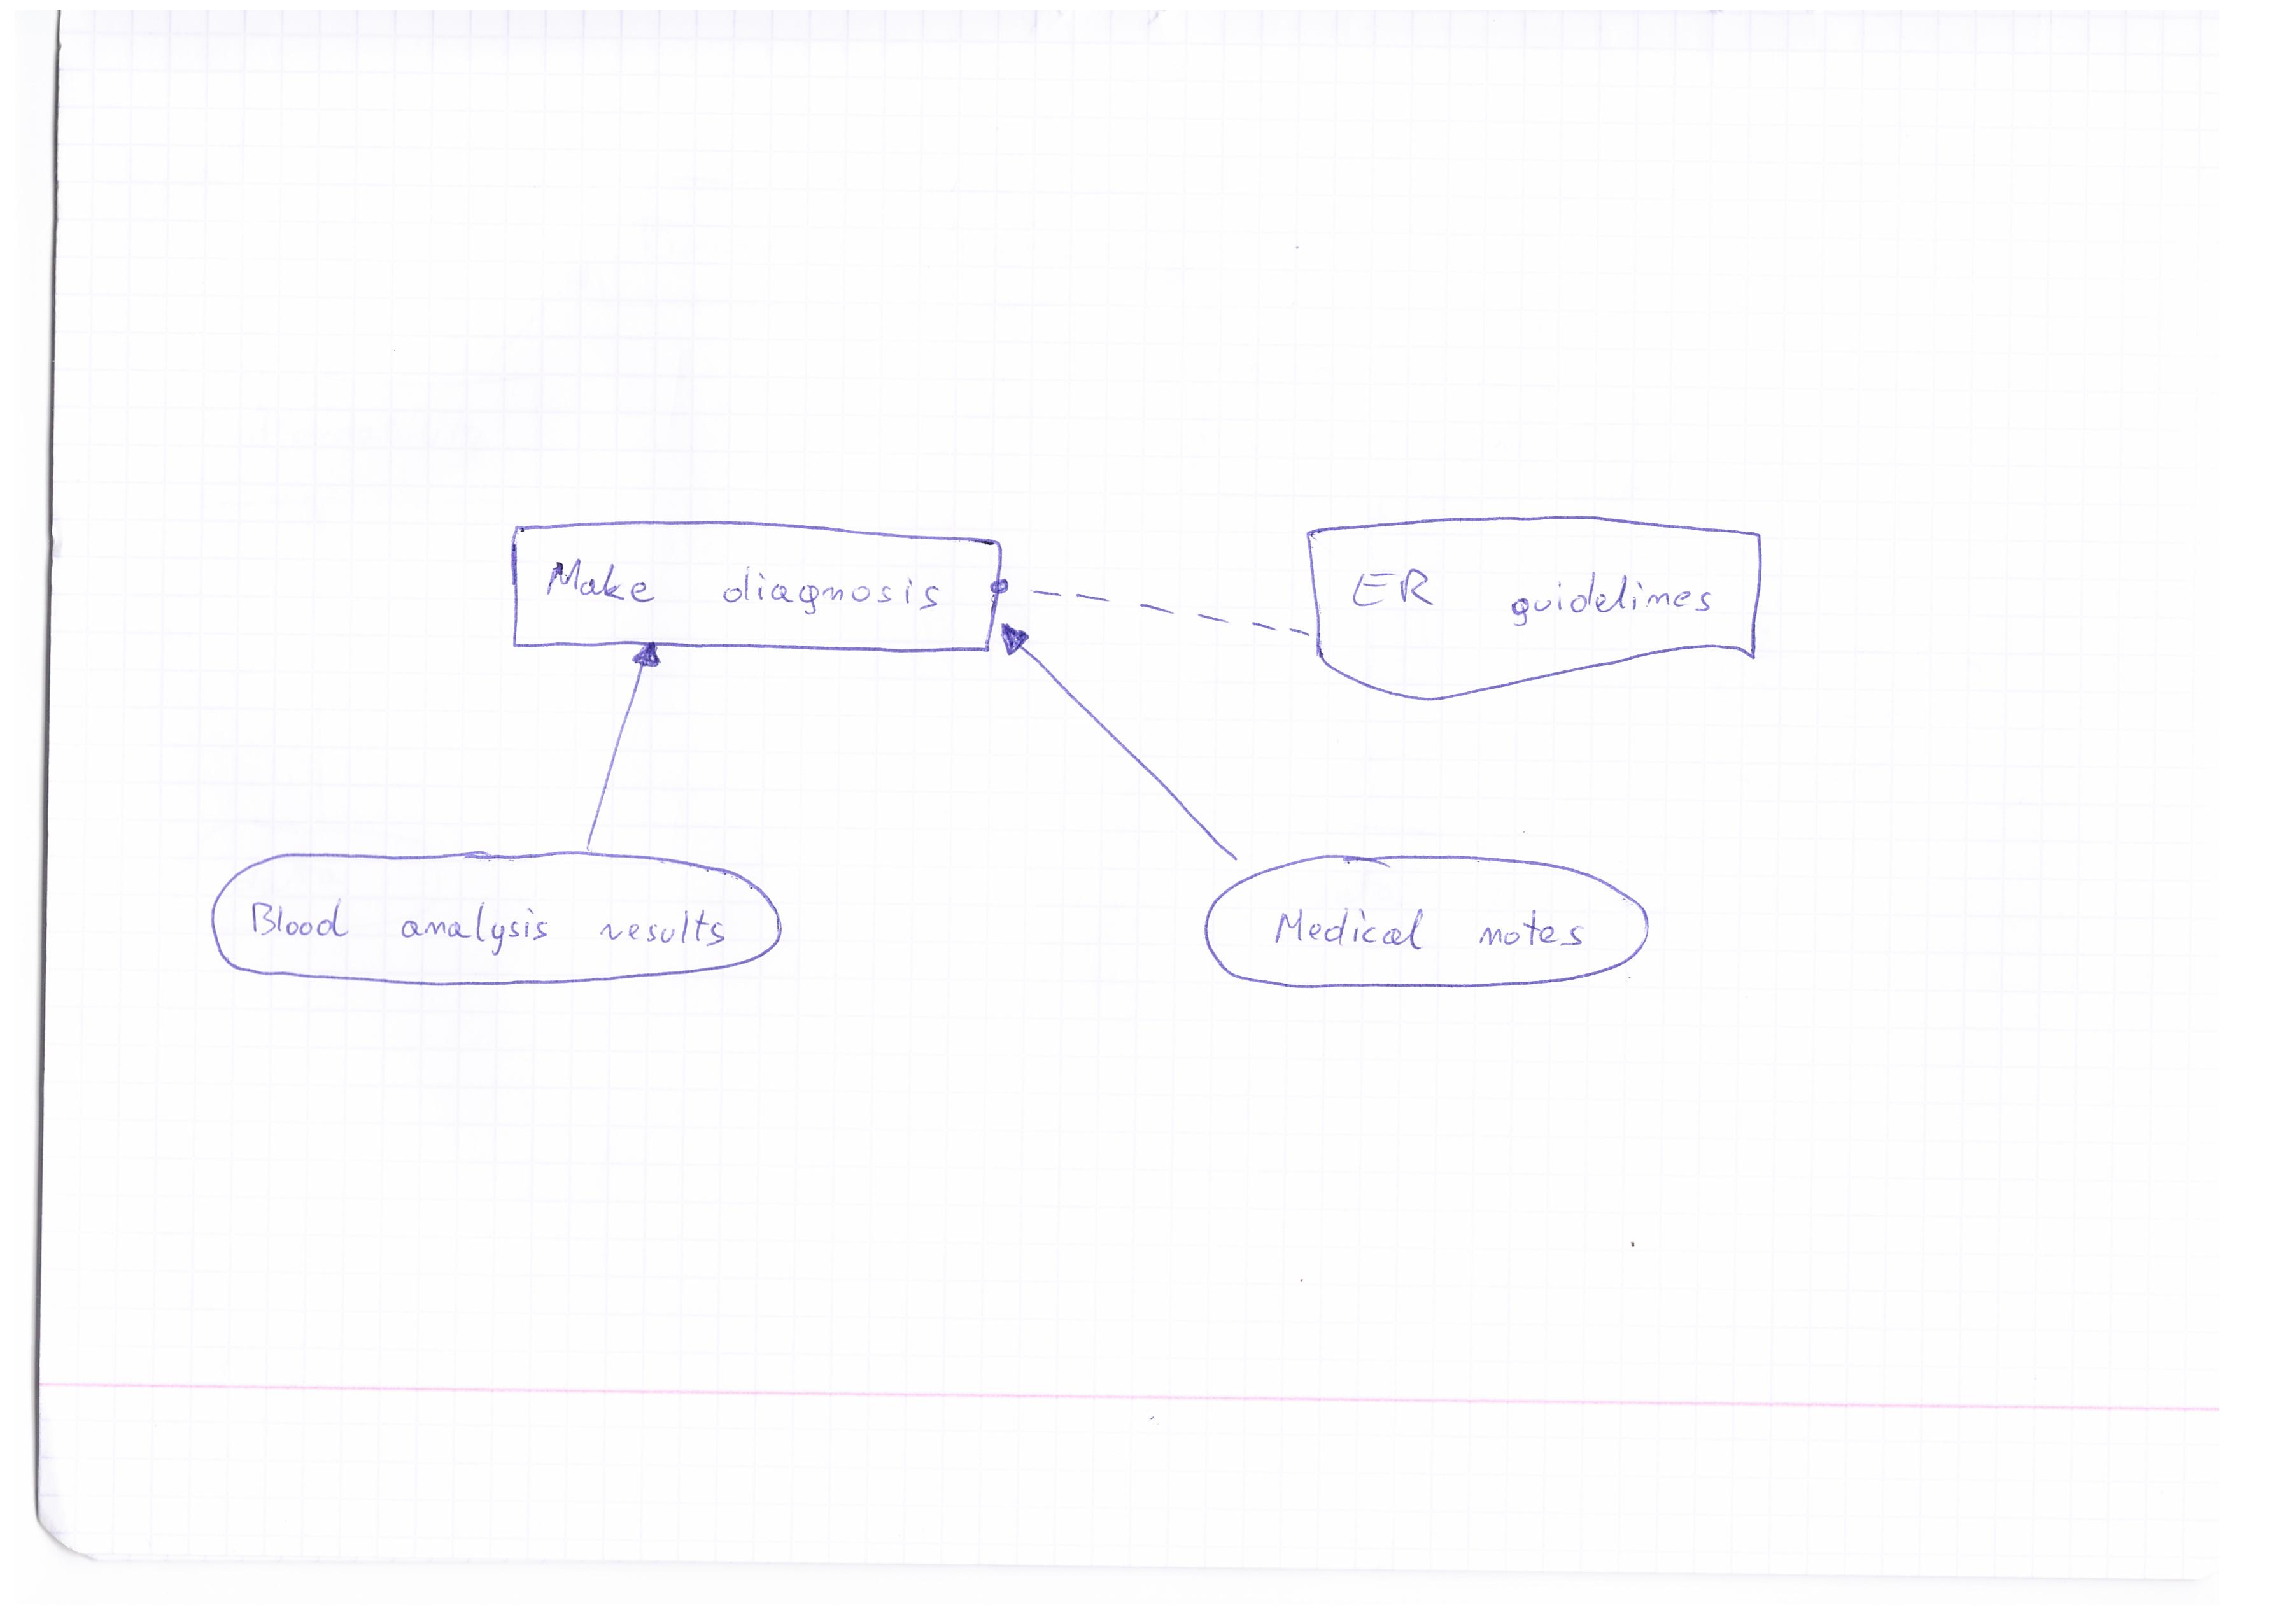 Make diagnosis
ER guidelines
Blood analysis results
Medical notes